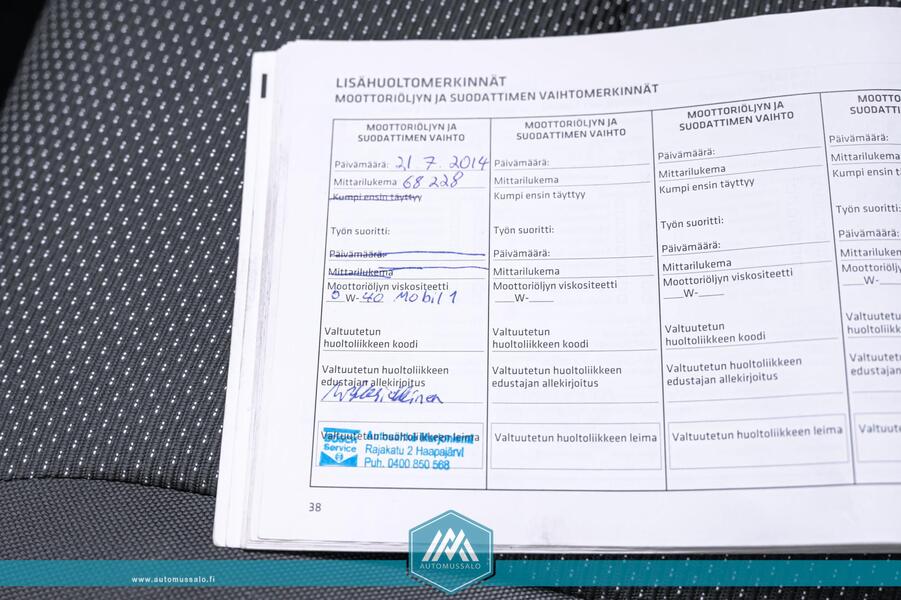 LISÄHUOLTOMERKINNÄT
MOOTTORIÖLJYN JA SUODATTIMEN VAIHTOMERKINNÄT
MOOTTORIÖLJYN JA
SUODATTIMEN VAIHTO
Päivämäärä: 21.7.2014
Mittarilukema 68 228
Kumpi ensin täyttyy
Työn suoritti:
Päivämäärä:
Mittarilukema
Moottoriöljyn viskositeetti
0 W-40 Mobil 1
Valtuutetun
huoltoliikkeen koodi
Valtuutetun huoltoliikkeen
edustajan allekirjoitus
Valtuutetun huoltoliikkeen leima
BOSCH
Service
Rajakatu 2 Haapajärvi
Puh. 0400 850 568
MOOTTORIÖLJYN JA
SUODATTIMEN VAIHTO
Päivämäärä:
Mittarilukema
Kumpi ensin täyttyy
Työn suoritti:
Päivämäärä:
Mittarilukema
Moottoriöljyn viskositeetti
___W-____
Valtuutetun
huoltoliikkeen koodi
Valtuutetun huoltoliikkeen
edustajan allekirjoitus
Valtuutetun huoltoliikkeen leima
MOOTTORIÖLJYN JA
SUODATTIMEN VAIHTO
Päivämäärä:
Mittarilukema
Kumpi ensin täyttyy
Työn suoritti:
Päivämäärä:
Mittarilukema
Moottoriöljyn viskositeetti
___W-____
Valtuutetun
huoltoliikkeen koodi
Valtuutetun huoltoliikkeen
edustajan allekirjoitus
Valtuutetun huoltoliikkeen leima
MOOTTO
SUODATTI
Päivämäärä:
Mittarilukema
Kumpi ensin t
Työn suoritti:
Päivämäärä:
Mittarilukem
Moottoriöljy
___W-__
Valtuutetu
huoltoliikk
Valtuutet
edustaja
Valtuute
38
AUTOMUSSALO
www.automussalo.fi